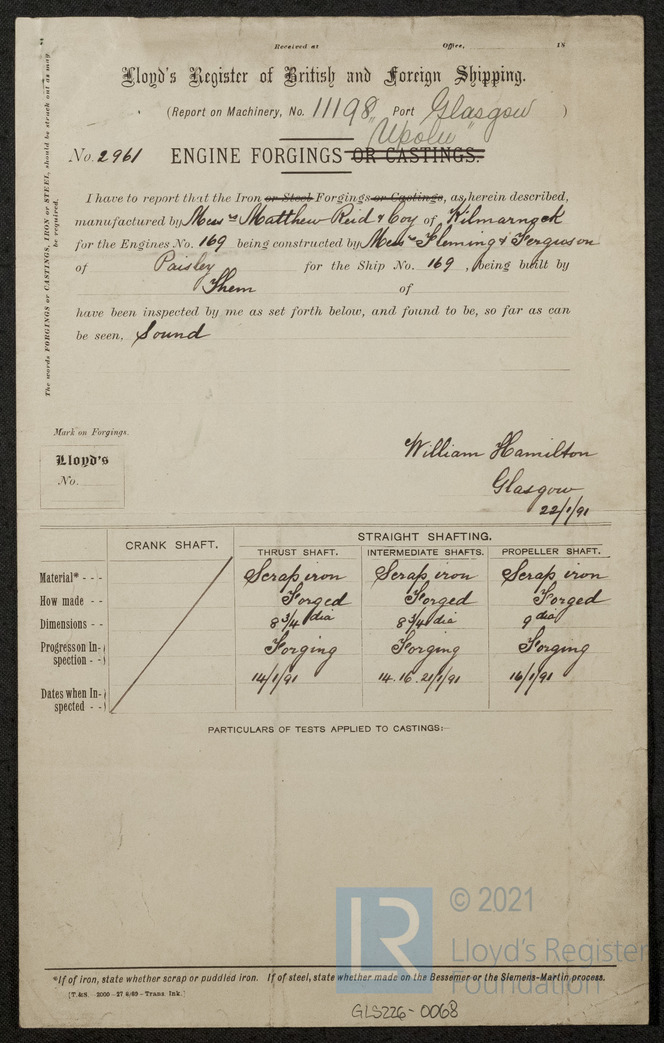 Received at Office, 18
Lloyd's Register of British and Foreign Shipping.
(Report on Machinery, No. 11198 Port Glasgow )
"Upolu"
No. 2961 ENGINE FORGINGS OR CASTINGS.
I have to report that the Iron or Steel Forgings or Castings, as herein described,
manufactured by Messrs Matthew Reid & Coy of Kilmarnock
for the Engines No. 169 being constructed by Messrs Fleming & Ferguson
of Paisley for the Ship No. 169, being built by
Them of
have been inspected by me as set forth below, and found to be, so far as can
be seen, Sound
The words FORGINGS or CASTINGS, IRON or STEEL, should be struck out as may
be required.
Mark on Forgings.
Lloyd's
No.
William Hamilton
Glasgow
22/1/91
CRANK SHAFT. STRAIGHT SHAFTING.
THRUST SHAFT. INTERMEDIATE SHAFTS. PROPELLER SHAFT.
Material* - - - Scrap iron Scrap iron Scrap iron
How made - - Forged Forged Forged
Dimensions - - 8 3/4 dia 8 3/4 dia 9 dia
Progress on In-
spection - - Forging Forging Forging
14/1/91 14. 16. 21/1/91 16/1/91
Dates when In-
spected - -
PARTICULARS OF TESTS APPLIED TO CASTINGS:—
*If of iron, state whether scrap or puddled iron. If of steel, state whether made on the Bessemer or the Siemens-Martin process.
[T.&S. 2000—27/8/89—Trans Ink.]
LR © 2021
Lloyd's Register
Foundation
GLS226-0068